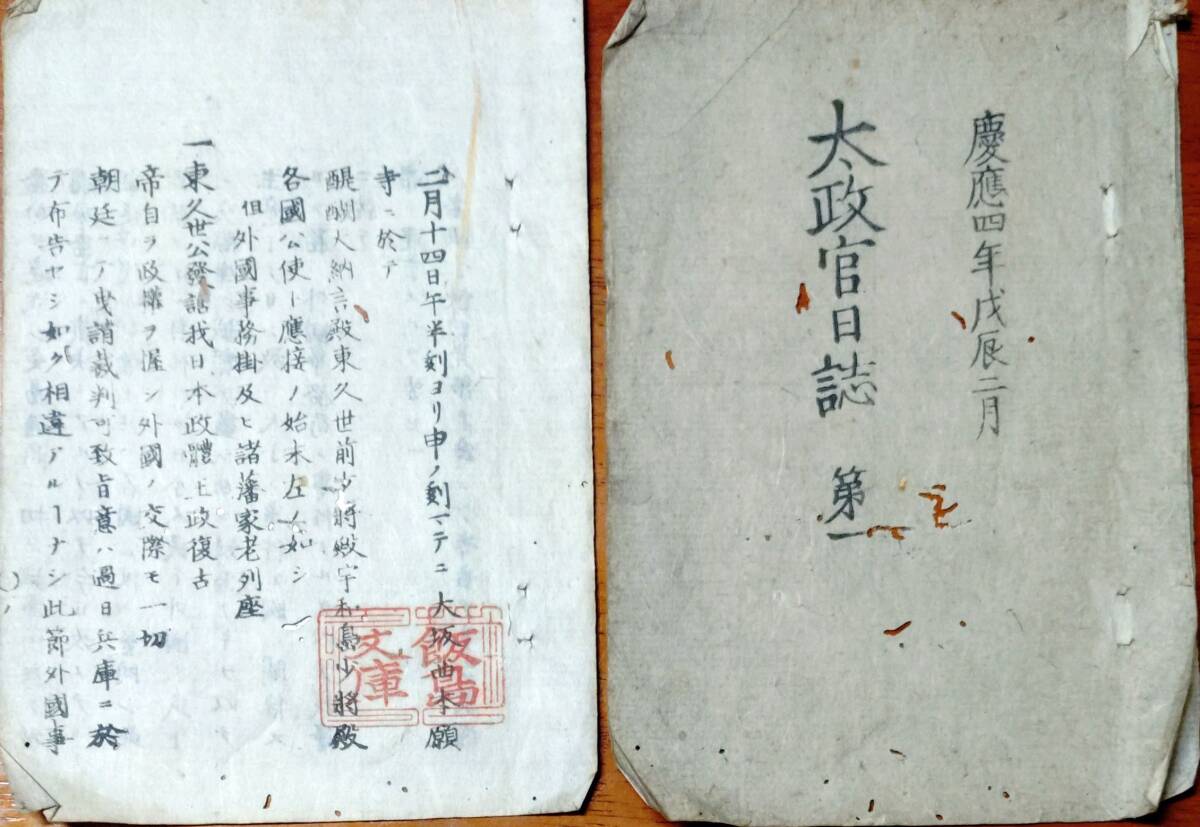 慶應四年戊辰二月
太政官日誌 第一
二月十四日午半刻ヨリ申ノ刻マテニ大坂西本願
寺ニ於テ
醍醐大納言殿東久世前少將殿宇和島少將殿
各國公使ト應接ノ始末左ノ如シ
但外國事務掛及ヒ諸藩家老列座
一東久世公發話我日本政體王政復古
帝自ラ政權ヲ握シ外國ノ交際モ一切
朝廷ニテ曳請裁判可致旨意ハ過日兵庫ニ於
テ布告セシ如ク相違アルヿナシ此節外國事
飯島
文庫